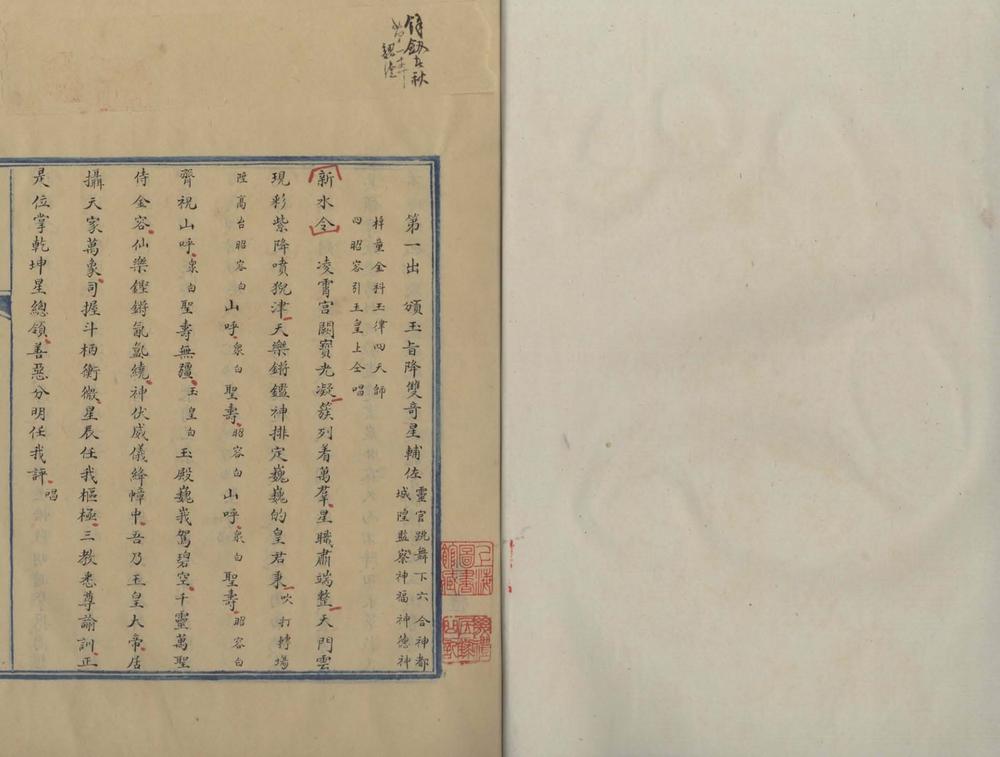 第一出　頒玉旨降雙奇星輔佐
靈官跳舞下六合神都
城隍監察神福神德神
梓童金科玉律四天師
四昭容引玉皇上仝唱
新水令　凌霄宮闕寶光凝簇列着萬羣星職肅端整天門雲
現彩紫降噴猊津天樂鏘鑑神排定巍巍的皇君秉吹打轉場
陞高台昭容白山呼衆白聖壽昭容白山呼衆白聖壽昭容白
齊祝山呼衆白聖壽無疆玉皇白玉殿巍我駕碧空千靈萬聖
侍金容仙樂鏗鏘氤氳繞神伏威儀絳幃中吾乃玉皇大帝居
攝天家萬象司握斗柄衡微星辰任我樞極三教悉尊諭訓正
是位掌乾坤星總領善惡分明任我評唱
上海
圖書
館藏